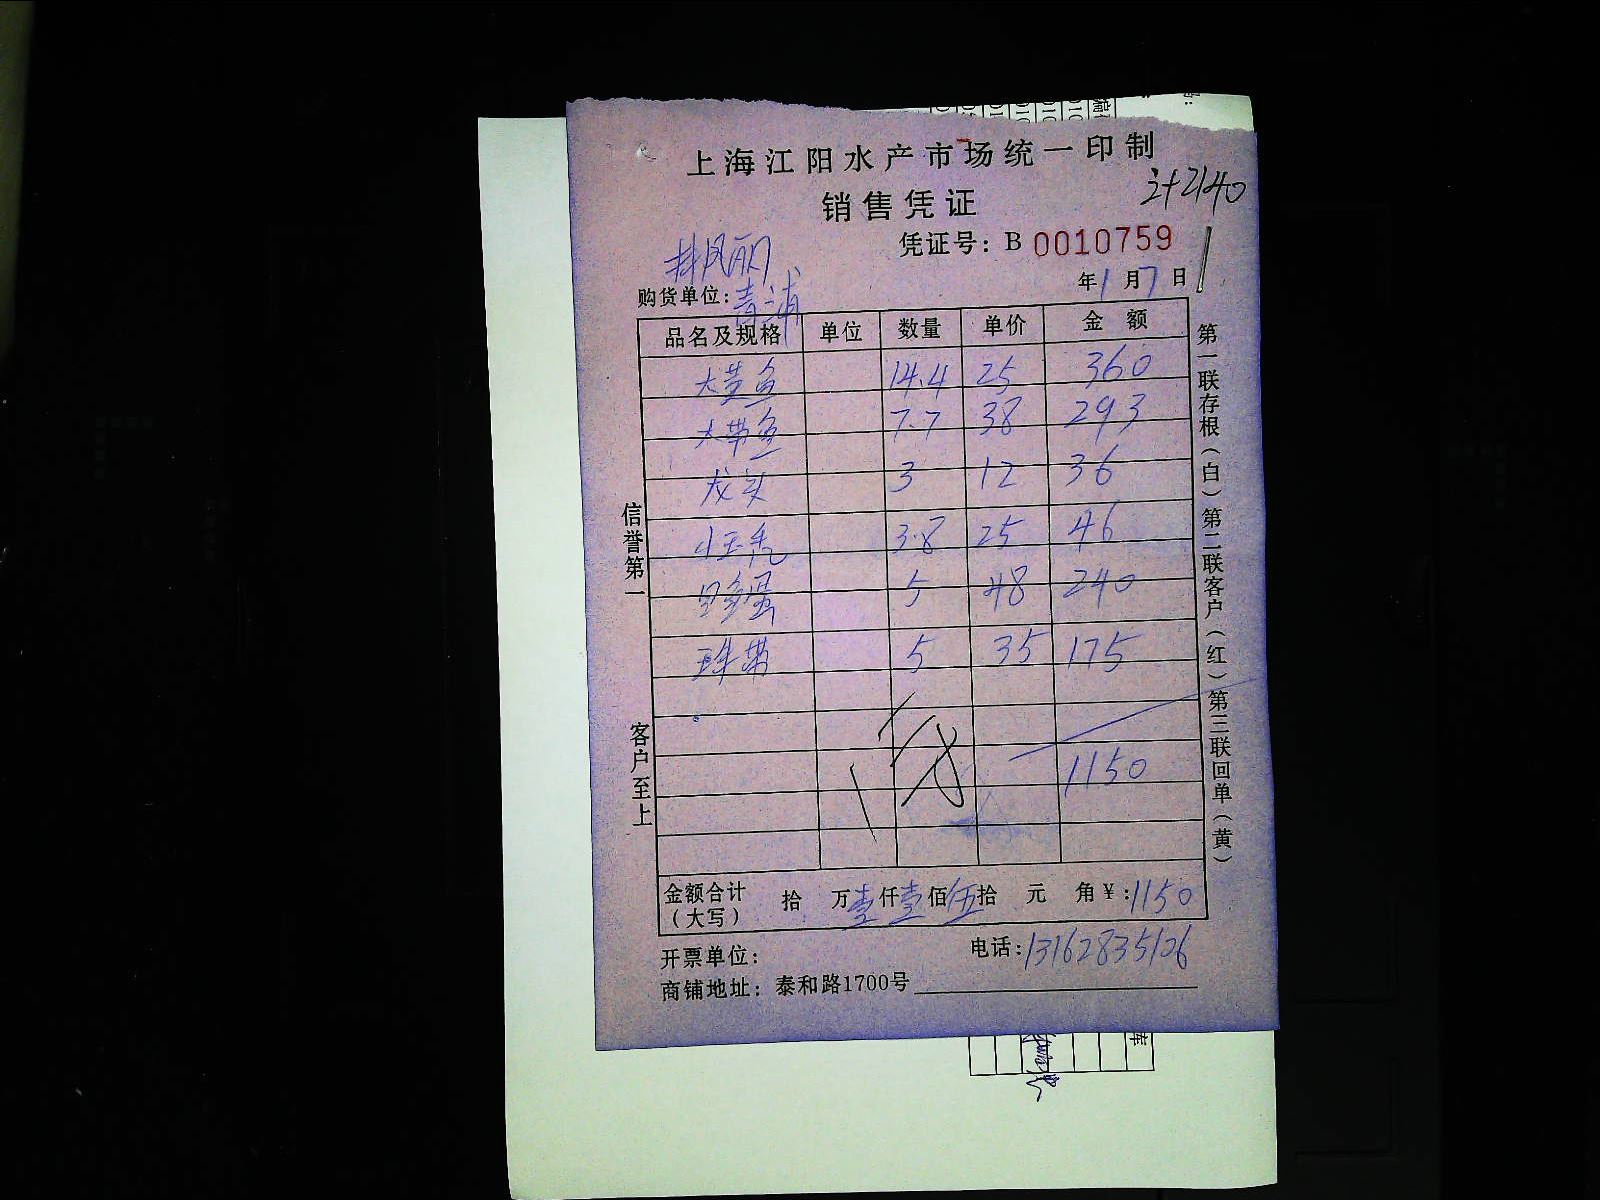 上海江阳水产市场统一印制
计2140
销售凭证
凭证号：B 0010759
林凤丽
年1月7日
购货单位：青浦
品名及规格 单位 数量 单价 金 额
大黄鱼 14.4 25 360
大带鱼 7.7 38 293
龙头 3 12 36
小玉秃 3.8 25 46
5 48 240
珠带 5 35 175
1150
金额合计（大写） 拾 万壹仟壹佰伍拾 元 角￥:1150
开票单位：
电话:13162835106
商铺地址：泰和路1700号
信誉第一
客户至上
第一联存根（白）第二联客户（红）第三联回单（黄）